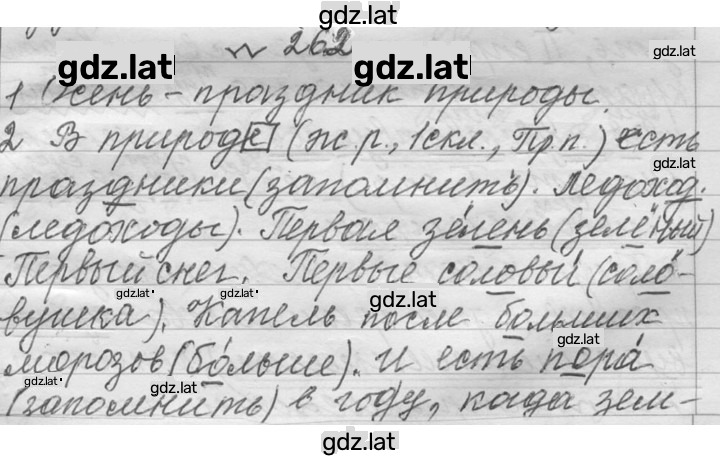 gdz.lat
№ 262
gdz.lat
gdz.lat gdz.lat
1 Осень - праздник природы.
2 В природе (ж.р., 1скл., Пр.п.) есть
gdz.lat
праздники (запомнить). Ледоход.
(ледоходы). Первая зелень (зелёный)
Первый снег. Первые соловьи (соло-
gdz.lat gdz.lat gdz.lat
вушка). Капель после больших
gdz.lat
морозов (больше). И есть пора
gdz.lat gdz.lat
(запомнить) в году, когда зем-
gdz.lat